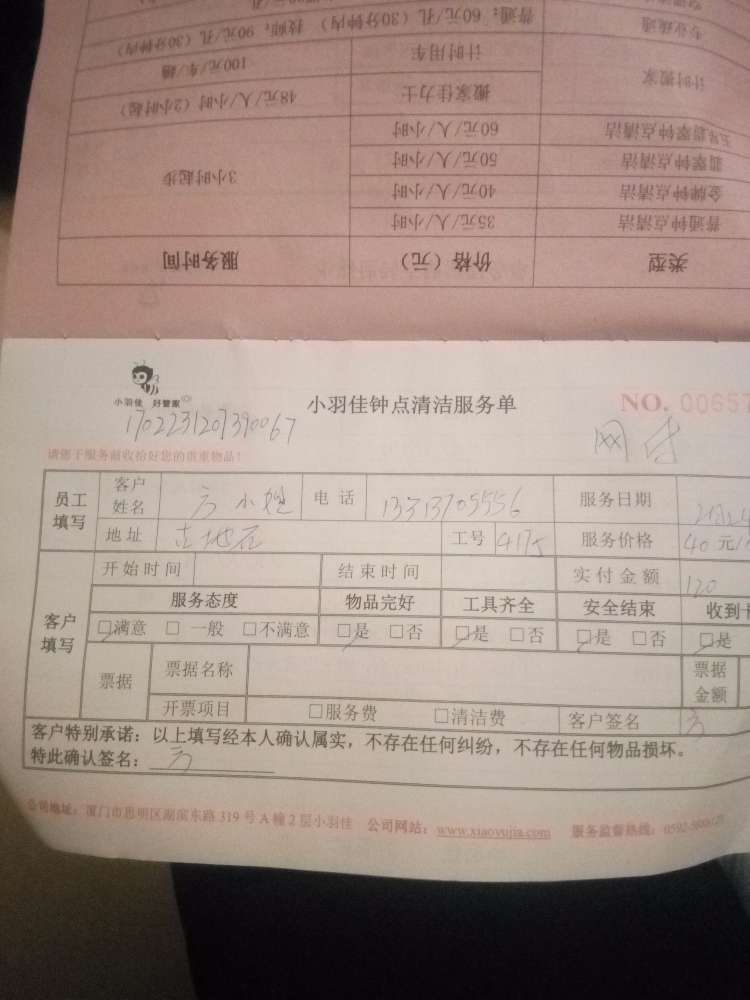 专业疏通 普通：60元/孔（30分钟内） 技师：90元/孔（30分钟内）
计时搬家 计时用车 100元/车/趟
搬家佳力士 48元/人/小时（2小时起）
翡翠钟点清洁 60元/人/小时
翡翠钟点清洁 50元/人/小时 3小时起步
金牌钟点清洁 40元/人/小时
普通钟点清洁 35元/人/小时
类型 价格（元） 服务时间
小羽佳 好管家
小羽佳钟点清洁服务单 NO. 00657
1702231207390067
网付
请您于服务前收拾好您的贵重物品！
员工填写 客户姓名 方小姐 电话 13313705556 服务日期
地址 工号 4175 服务价格 40元/
客户填写 开始时间 结束时间 实付金额 120
服务态度 物品完好 工具齐全 安全结束 收到
□满意 □一般 □不满意 □是 □否 □是 □否 □是 □否 □是
票据 票据名称 票据金额
开票项目 □服务费 □清洁费 客户签名 方
客户特别承诺：以上填写经本人确认属实，不存在任何纠纷，不存在任何物品损坏。
特此确认签名：方
公司地址：厦门市思明区湖滨东路319号A幢2层小羽佳 公司网站：www.xiaoyujia.com 服务监督热线：0592-